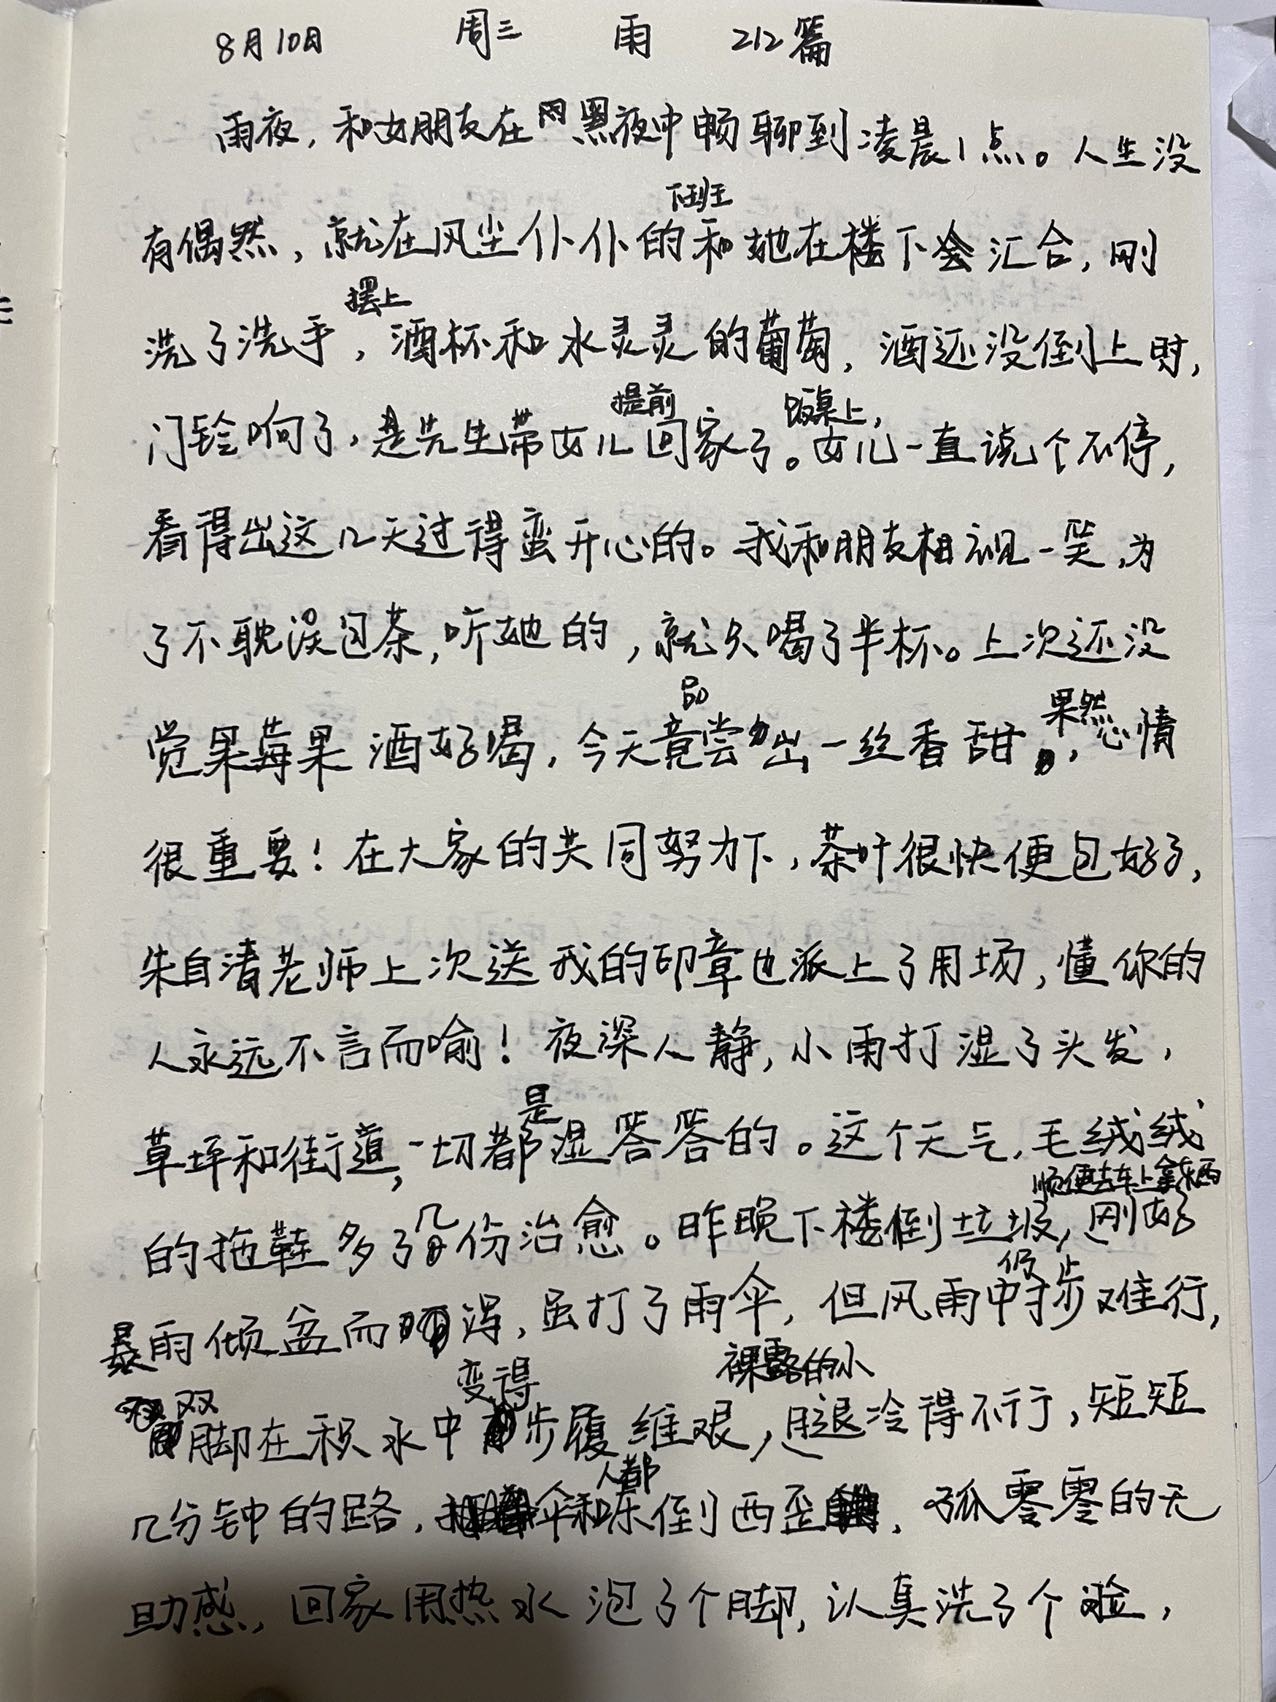 8月10日 周三 雨 212篇
雨夜，和女朋友在黑夜中畅聊到凌晨1点。人生没
下班
有偶然，就在风尘仆仆的和她在楼下会汇合，刚
摆上
洗了洗手，酒杯和水灵灵的葡萄，酒还没倒上时，
提前 饭桌上，
门铃响了，是先生带女儿回家了。女儿一直说个不停，
看得出这几天过得蛮开心的。我和朋友相视一笑，为
了不耽误包茶，听她的，就只喝了半杯。上次还没
品 果然
觉果莓果酒好喝，今天竟尝出一丝香甜，心情
很重要！在大家的共同努力下，茶叶很快便包好了，
朱自清老师上次送我的印章也派上了用场，懂你的
人永远不言而喻！夜深人静，小雨打湿了头发，
是
草坪和街道，一切都湿答答的。这个天气，毛绒绒
顺便去车上拿东西
的拖鞋多了几份治愈。昨晚下楼倒垃圾，刚好
仍
暴雨倾盆而泻，虽打了雨伞，但风雨中寸步难行，
变得 裸露的小
双脚在积水中步履维艰，腿冷得不行，短短
人都
几分钟的路，伞和东倒西歪，孤零零的无
助感，回家用热水泡了个脚，认真洗了个脸，